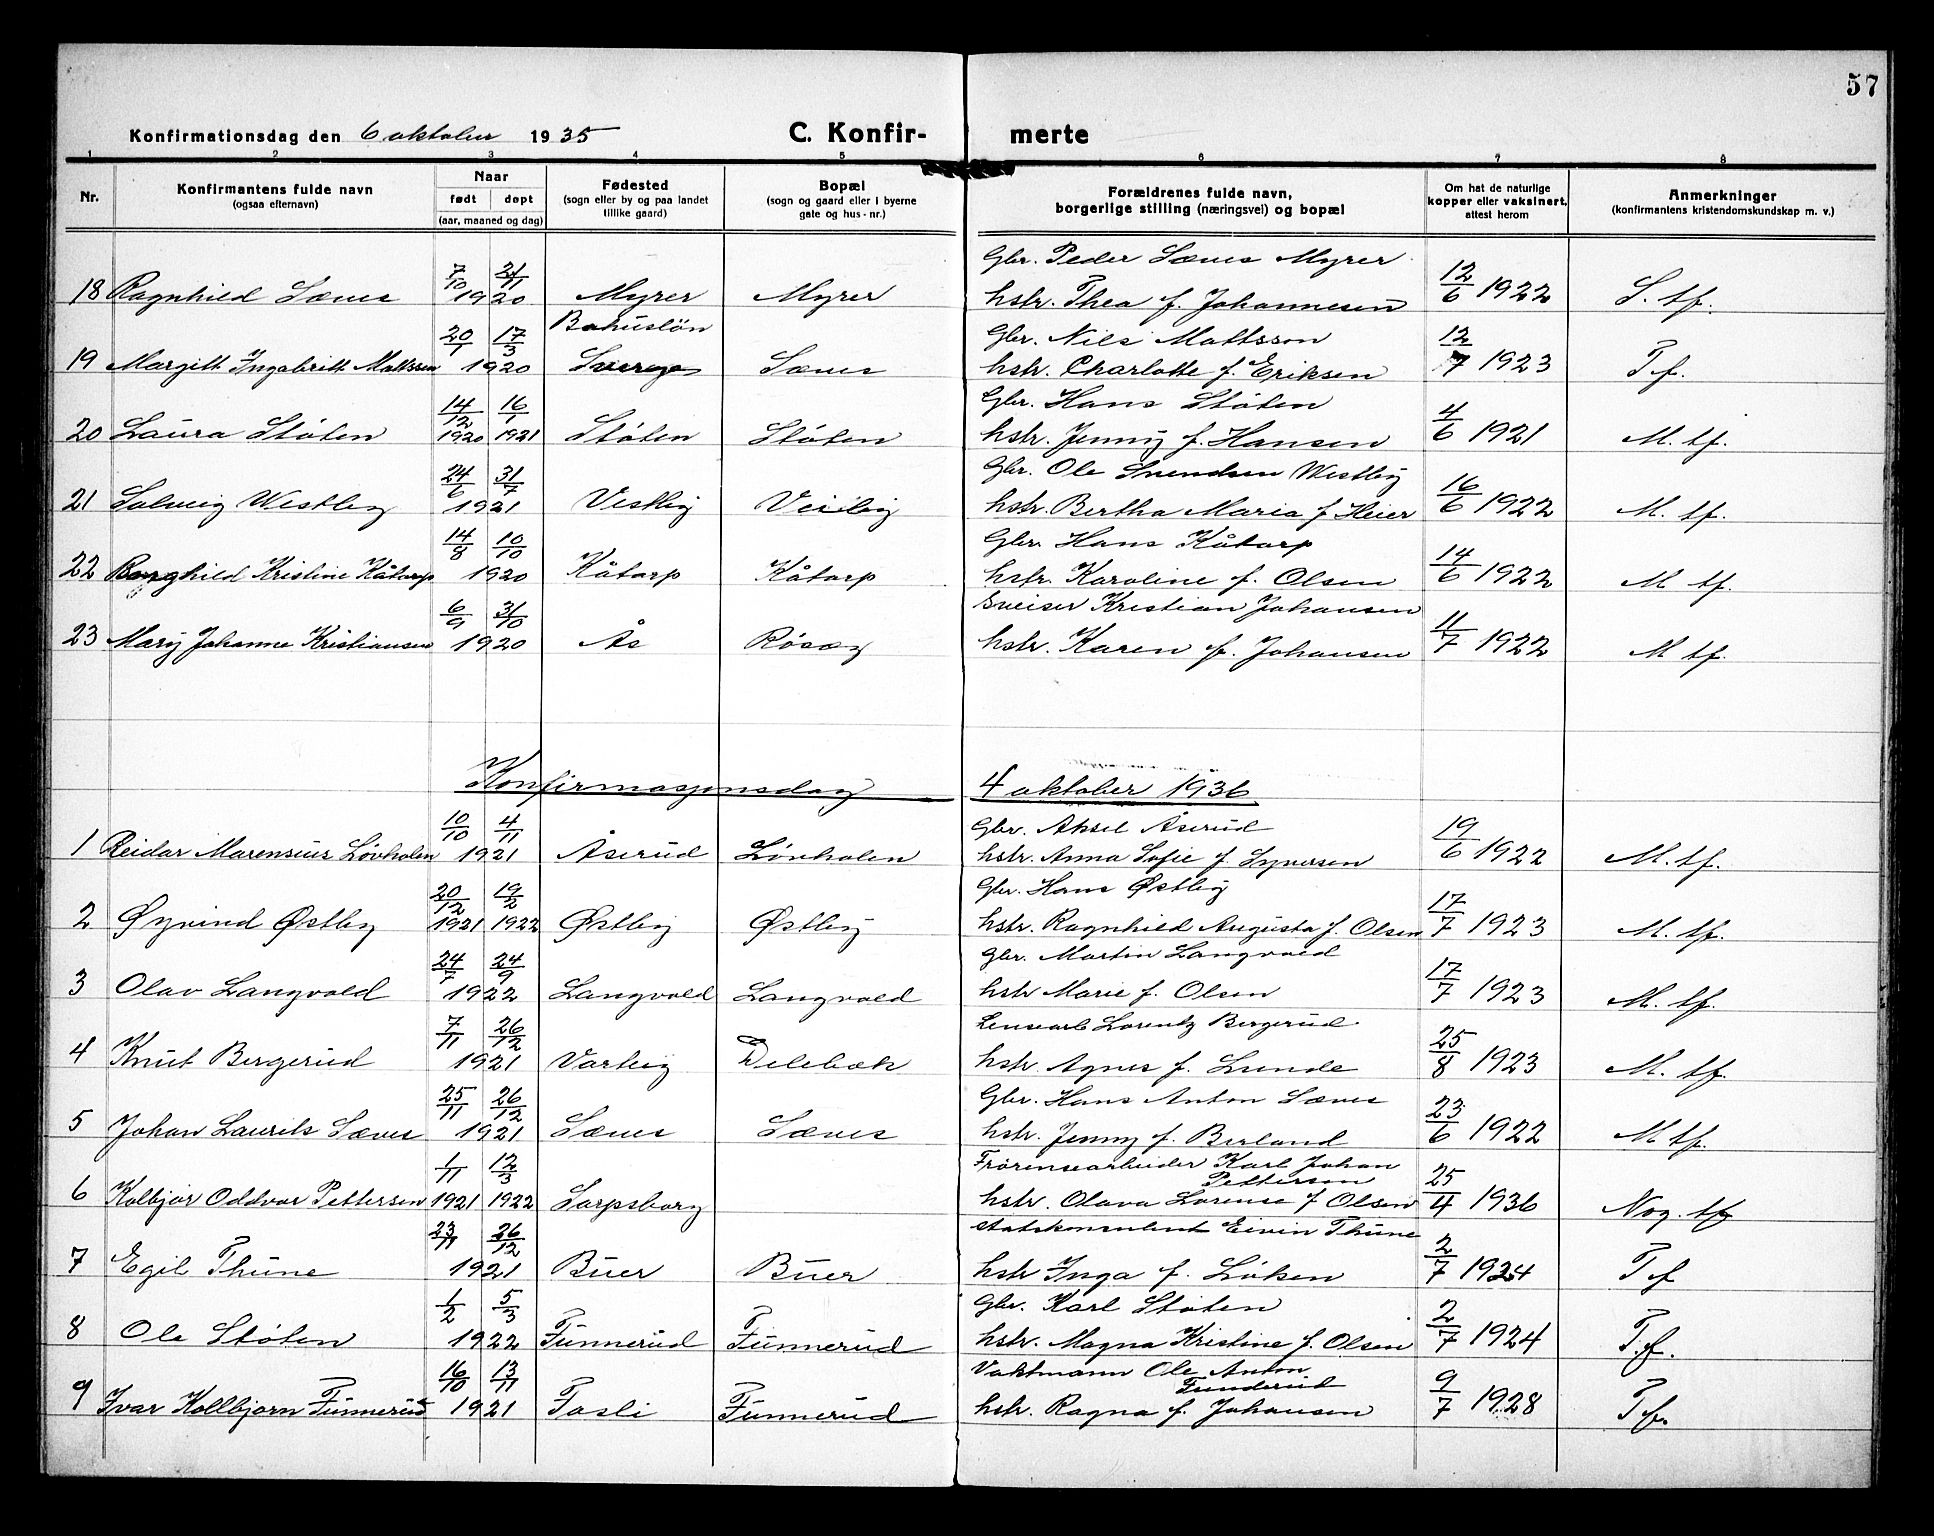 57
Konfirmationsdag den 6 oktober 1935 C. Konfir- merte
1 2 3 4 5 6 7 8
Nr. Konfirmantens fulde navn (ogsaa efternavn) Naar født døpt (aar, maaned og dag) Fødested (sogn eller by og paa landet tillike gaard) Bopæl (sogn og gaard eller i byerne gate og hus-nr.) Forældrenes fulde navn, borgerlige stilling (næringsvei) og bopæl Om hat de naturlige kopper eller vaksinert, attest herom Anmerkninger (konfirmantens kristendomskundskap m. v.)
Gbr. Peder Sæves Myrer
18 Ragnhild Sæves 7/10 21/11 1920 Myrer Myrer hstr. Thea f. Johannesen 12/6 1922 S. tf.
Bohuslön Gbr. Nils Mattsson
19 Margitt Ingabritt Mattsson 20/1 17/3 1920 Sverege Sæves hstr. Charlotte f. Eriksen 12/7 1923 T f.
Gbr. Hans Støten
20 Laura Støten 14/12 1920 16/1 1921 Støten Støten hstr. Jenny f. Hansen 4/6 1921 M. tf.
Gbr. Ole Svendsen Westby
21 Solveig Westby 24/6 31/7 1921 Vestby Vestby hstr. Bertha Maria f Heier 16/6 1922 M. tf.
Gbr. Hans Kåtorp
22 Borghild Kristine Kåtorp 14/8 10/10 1920 Kåtorp Kåtorp hstr. Karoline f. Olsen 14/6 1922 M tf.
Sveiser Kristian Johansen
23 Mary Johanne Kristiansen 6/9 31/10 1920 Ås Rösæg hstr. Karen f. Johansen 11/7 1922 M tf.
Konfirmasjonsdag 4 oktober 1936
Gbr. Aksel Åserud
1 Reidar Marensius Løvholen 10/10 4/11 1921 Åserud Løvholen hstr. Anna Sofie f. Syversen 19/6 1922 M. tf.
Gbr. Hans Østby
2 Øyvind Østby 20/12 1921 19/2 1922 Østby Østby hstr. Ragnhild Augusta f. Olsen 17/7 1923 M. tf.
Gbr. Martin Langvold
3 Olav Langvold 24/7 24/9 1922 Langvold Langvold hstr Marie f. Olsen 17/7 1923 M. tf.
Lensearb Lorentz Bergerud
4 Knut Bergerud 7/11 26/12 1921 Varteig Delebæk hstr. Agnes f. Lunde 25/8 1923 M. tf.
Gbr. Hans Anton Sæves
5 Johan Laurits Sæves 25/11 26/12 1921 Sæves Sæves hstr. Jenny f. Berland 23/6 1922 M tf.
Karl Johan Pettersen
6 Kolbjør Oddvar Pettersen 1/11 1921 12/3 1922 Sarpsborg hstr. Olava Lorense f Olsen 25/4 1936 Nog. tf
Statskonsulent Eivin Thune
7 Egil Thune 23/11 26/12 1921 Buer Buer hstr Inga f. Løken 2/7 1924 T f
Gbr. Karl Støten
8 Ole Støten 1/2 5/3 1922 Funnerud Funnerud hstr. Magna Kristine f. Olsen 2/7 1924 T.f.
Vaktmann Ole Anton Funderud
9 Ivar Kolbjørn Funnerud 16/10 13/11 1921 Tasli Funnerud hstr. Ragna f. Johansen 9/7 1928 T.f.